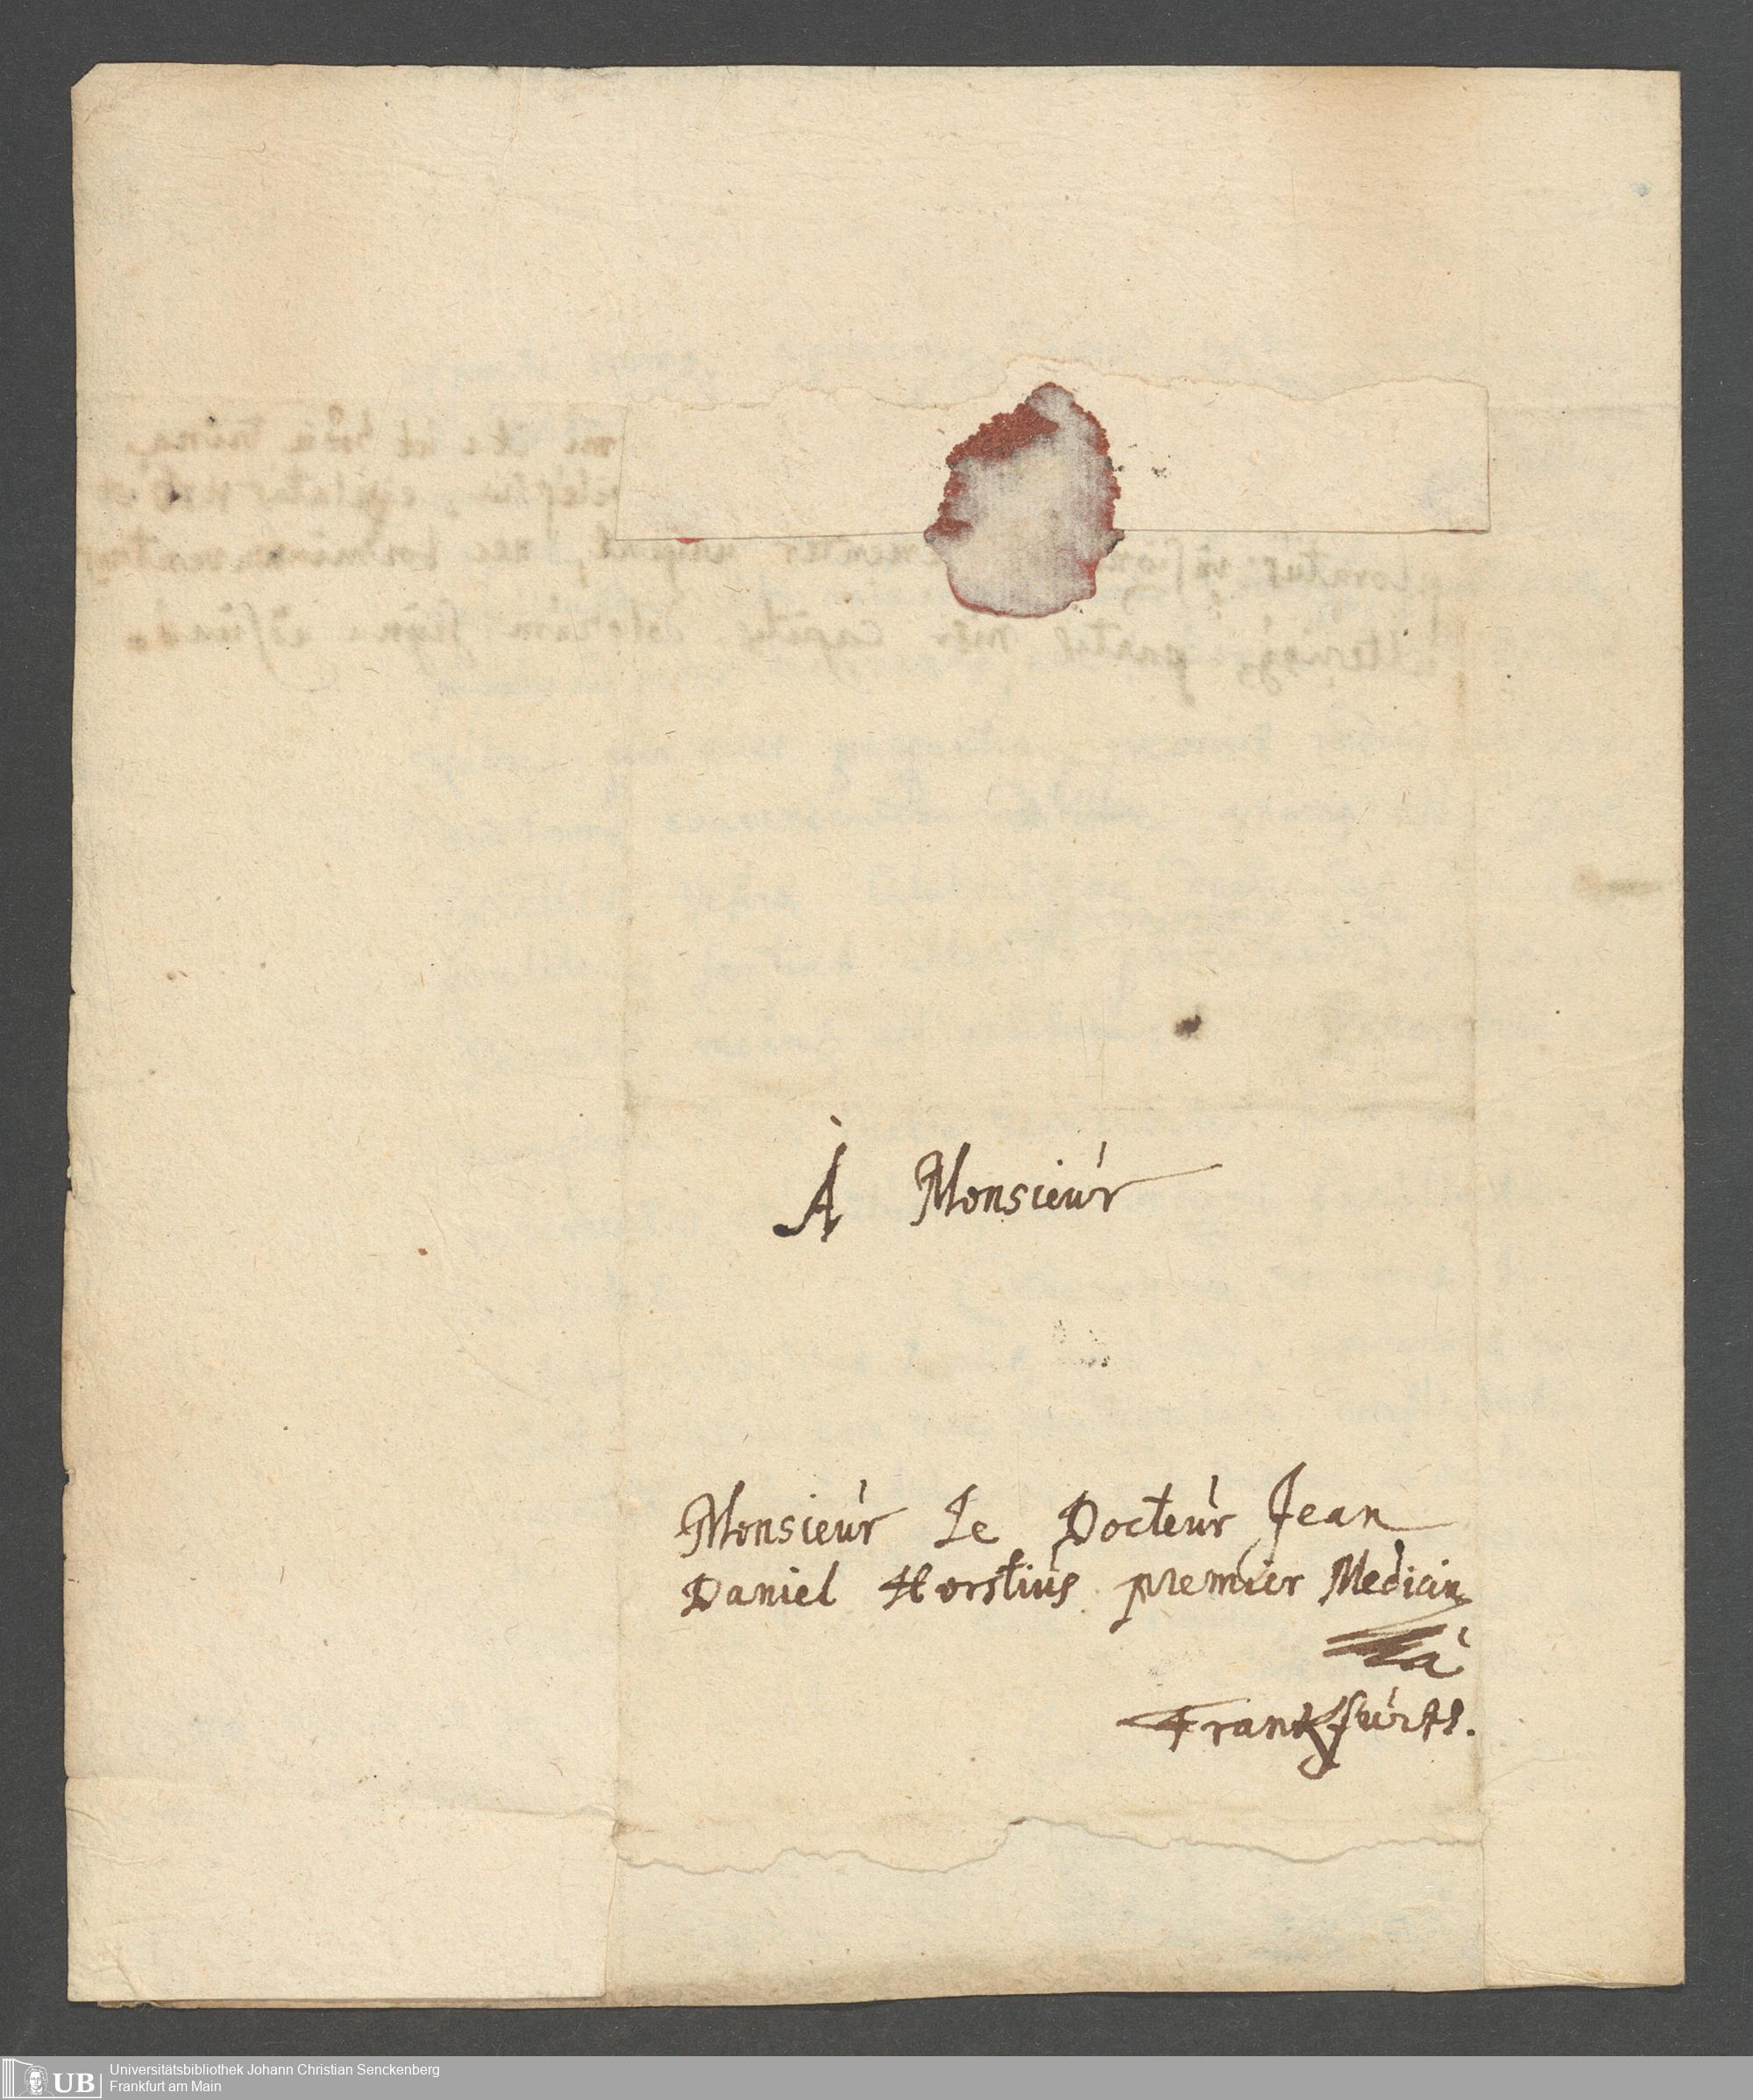 À Monsieur
Monsieur Le Docteur Jean
Daniel Horstius premier Medicin
à
Frankfurtt.
UB Universitätsbibliothek Johann Christian Senckenberg
Frankfurt am Main